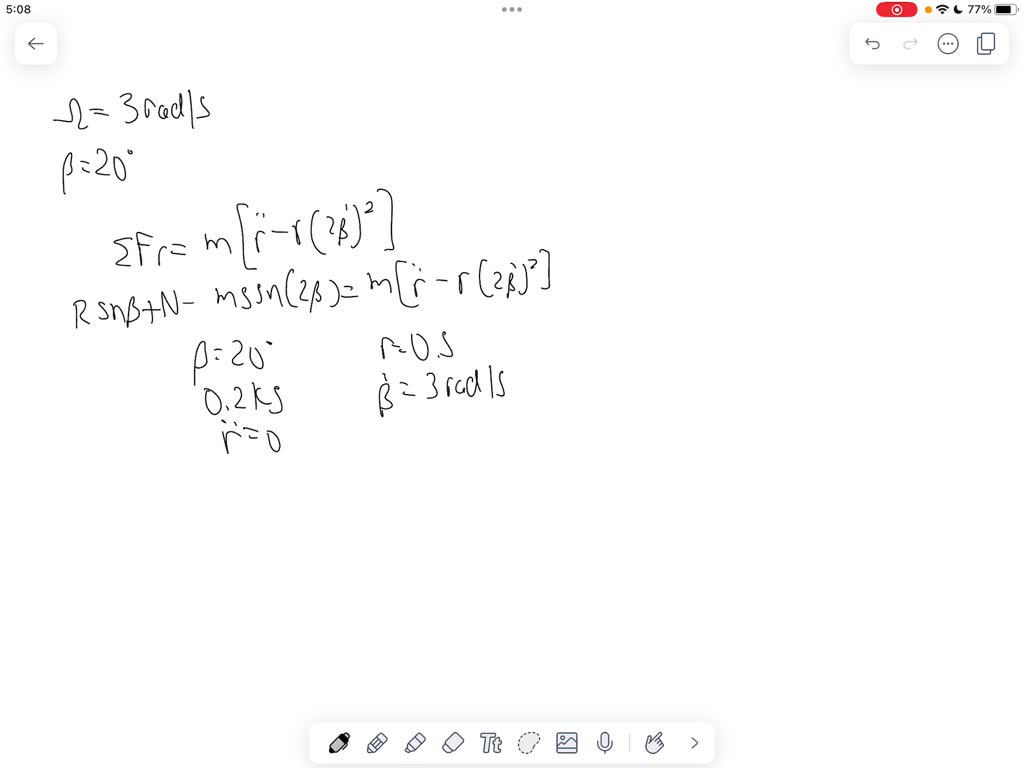 5:08
77%
Ω = 3 rad/s
β = 20°
ΣFr = m[r̈ - r(2β̇)²]
R sinβ + N - mg sin(2β) = m[r̈ - r(2β̇)²]
β = 20° r = 0.5
0.2 kg β̇ = 3 rad/s
r̈ = 0
Tt